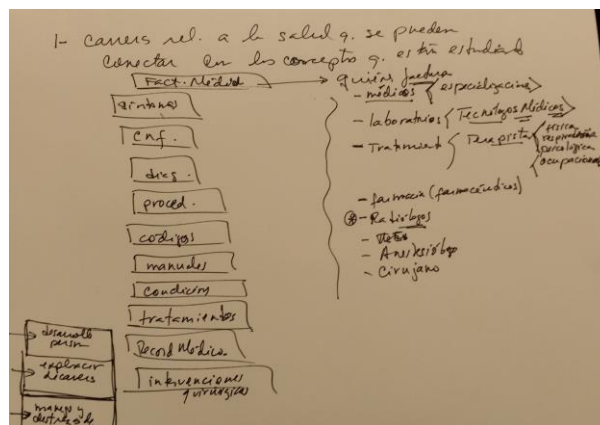 1- carreras rel. a la salud q. se pueden
conectar con los concepto q. están estudiando
Fact. Médica
síntomas
enf.
diag.
proced.
códigos
manuales
condición
tratamientos
Record Médico
intervenciones
quirúrgicas
quiénes factura
- médicos < especializaciones >
- laboratorios < Tecnólogos Médicos >
- Tratamient < Terapistas < física
respiratoria
psicológica
ocupacional
- farmacia (farmacéuticos)
- Radiólogos
- Anestesiólogo
- Cirujano
desarrollo
person
exploración
de carreras
manejo y
destrezas de